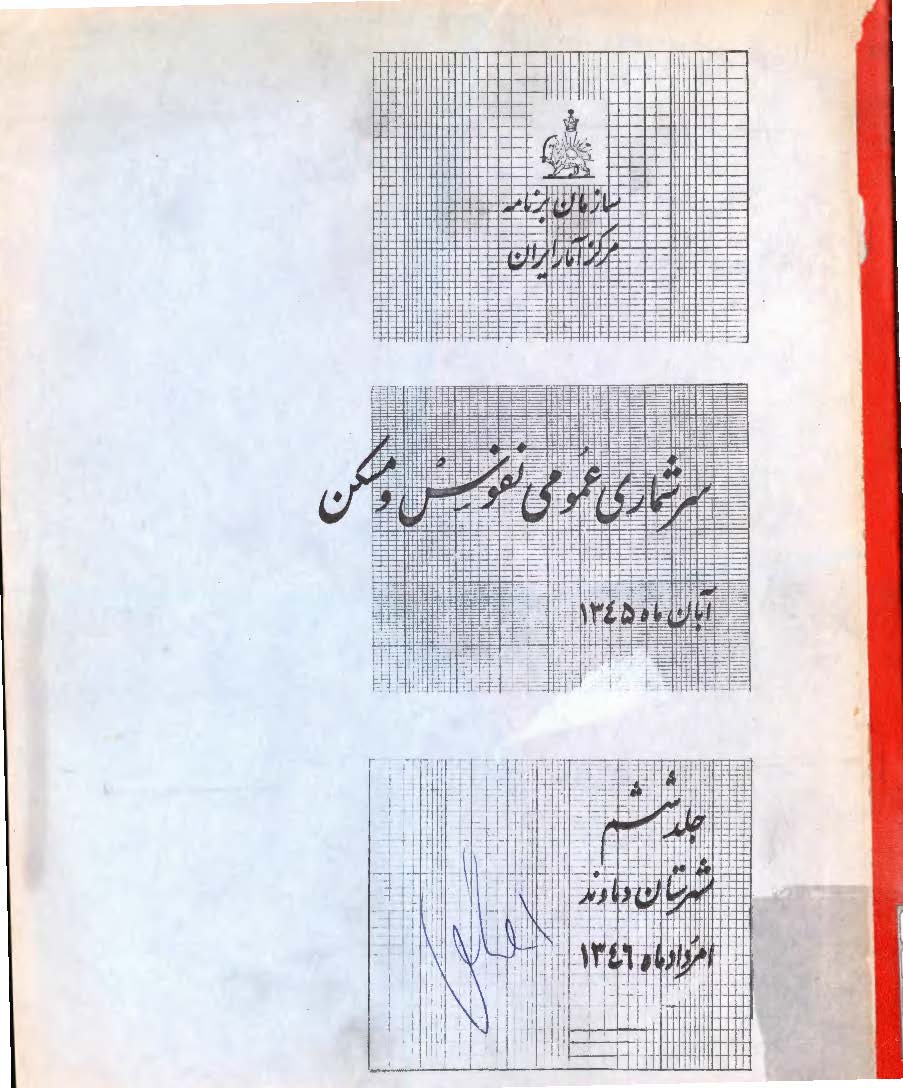 سازمان برنامه
مرکز آمار ایران
سرشماری عمومی نفوس و مسکن
آبان ماه ۱۳۴۵
جلد ششم
شهرستان دماوند
امرداد ماه ۱۳۴۶